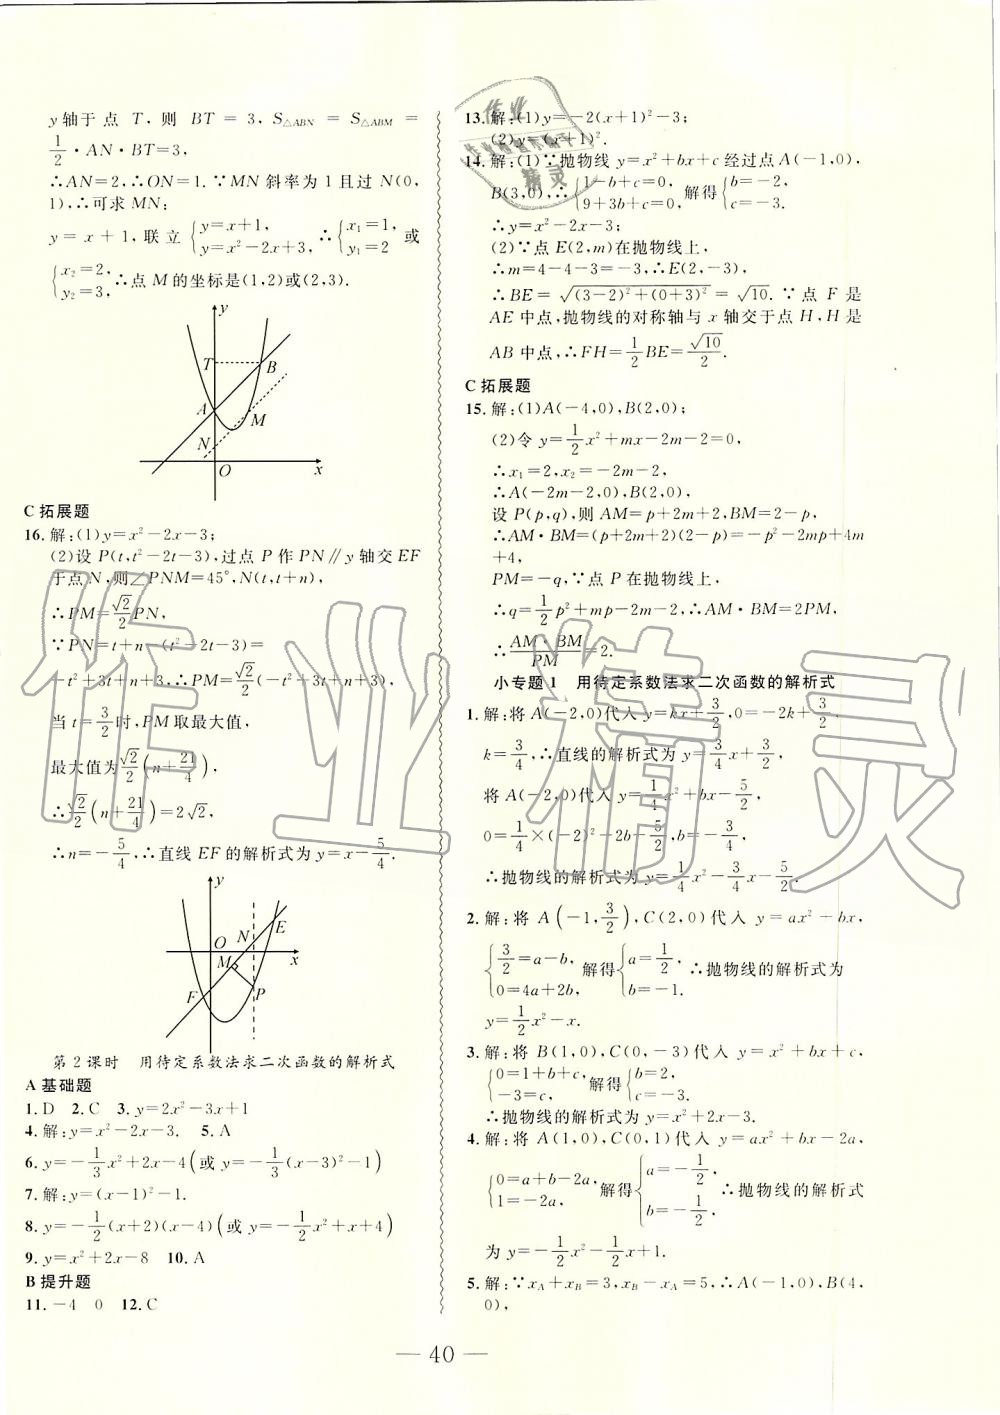 y轴于点 T, 则 BT = 3, S△ABN = S△ABM =
1/2·AN·BT=3,
∴AN=2,∴ON=1.∵MN斜率为1且过N(0,
1),∴可求MN:
y=x+1,联立{y=x+1, y=x²-2x+3, ∴{x₁=1, y₁=2 或
{x₂=2, y₂=3, ∴点M的坐标是(1,2)或(2,3).
y
T
B
A
M
N
O
x
C拓展题
16.解:(1)y=x²-2x-3;
(2)设P(t,t²-2t-3),过点P作PN∥y轴交EF
于点N,则∠PNM=45°,N(t,t+n),
∴PM=√2/2PN,
∵PN=t+n-(t²-2t-3)=
-t²+3t+n+3,∴PM=√2/2(-t²+3t+n+3)
当t=3/2时,PM取最大值,
最大值为√2/2(n+21/4),
∴√2/2(n+21/4)=2√2,
∴n=-5/4,∴直线EF的解析式为y=x-5/4.
y
E
O
N
x
M
F
P
第2课时 用待定系数法求二次函数的解析式
A基础题
1.D 2.C 3.y=2x²-3x+1
4.解:y=x²-2x-3. 5.A
6.y=-1/3x²+2x-4(或y=-1/3(x-3)²-1)
7.解:y=(x-1)²-1.
8.y=-1/2(x+2)(x-4)(或y=-1/2x²+x+4)
9.y=x²+2x-8 10.A
B提升题
11.-4 0 12.C
13.解:(1)y=-2(x+1)²-3;
(2)y=(x+1)².
14.解:(1)∵抛物线y=x²+bx+c经过点A(-1,0),
B(3,0),∴{1-b+c=0, 9+3b+c=0, 解得{b=-2, c=-3.
∴y=x²-2x-3;
(2)∵点E(2,m)在抛物线上,
∴m=4-4-3=-3,∴E(2,-3),
∴BE=√((3-2)²+(0+3)²)=√10.∵点F是
AE中点,抛物线的对称轴与x轴交于点H,H是
AB中点,∴FH=1/2BE=√10/2.
C拓展题
15.解:(1)A(-4,0),B(2,0);
(2)令y=1/2x²+mx-2m-2=0,
∴x₁=2,x₂=-2m-2,
∴A(-2m-2,0),B(2,0),
设P(p,q),则AM=p+2m+2,BM=2-p,
∴AM·BM=(p+2m+2)(2-p)=-p²-2mp+4m
+4,
PM=-q,∵点P在抛物线上,
∴q=1/2p²+mp-2m-2,∴AM·BM=2PM,
∴AM·BM/PM=2.
小专题1 用待定系数法求二次函数的解析式
1.解:将A(-2,0)代入y=kx+3/2,0=-2k+3/2,
k=3/4,∴直线的解析式为y=3/4x+3/2,
将A(-2,0)代入y=1/4x²+bx-5/2,
0=1/4×(-2)²-2b-5/2,b=-3/4,
∴抛物线的解析式为y=1/4x²-3/4x-5/2.
2.解:将A(-1,3/2),C(2,0)代入y=ax²+bx,
{3/2=a-b, 0=4a+2b, 解得{a=1/2, b=-1. ∴抛物线的解析式为
y=1/2x²-x.
3.解:将B(1,0),C(0,-3)代入y=x²+bx+c,
{0=1+b+c, -3=c, 解得{b=2, c=-3.
∴抛物线的解析式为y=x²+2x-3.
4.解:将A(1,0),C(0,1)代入y=ax²+bx-2a,
{0=a+b-2a, 1=-2a, 解得{a=-1/2, b=-1/2. ∴抛物线的解析式
为y=-1/2x²-1/2x+1.
5.解:∵xA+xB=3,xB-xA=5,∴A(-1,0),B(4,
0),
— 40 —
作业精灵